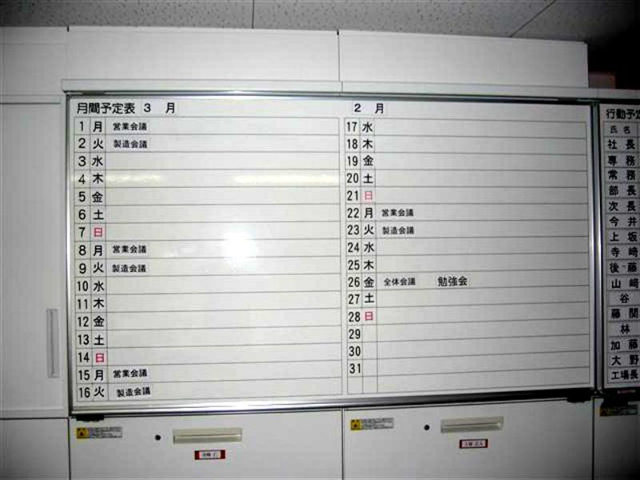 月間予定表 3 月
1 月 営業会議
2 火 製造会議
3 水
4 木
5 金
6 土
7 日
8 月 営業会議
9 火 製造会議
10 水
11 木
12 金
13 土
14 日
15 月 営業会議
16 火 製造会議
2 月
17 水
18 木
19 金
20 土
21 日
22 月 営業会議
23 火 製造会議
24 水
25 木
26 金 全体会議 勉強会
27 土
28 日
29
30
31
行動予定
氏名
社長
専務
常務
部長
次長
今井
上坂
寺崎
後藤
山崎
谷
藤間
林
加藤
大野
工場長